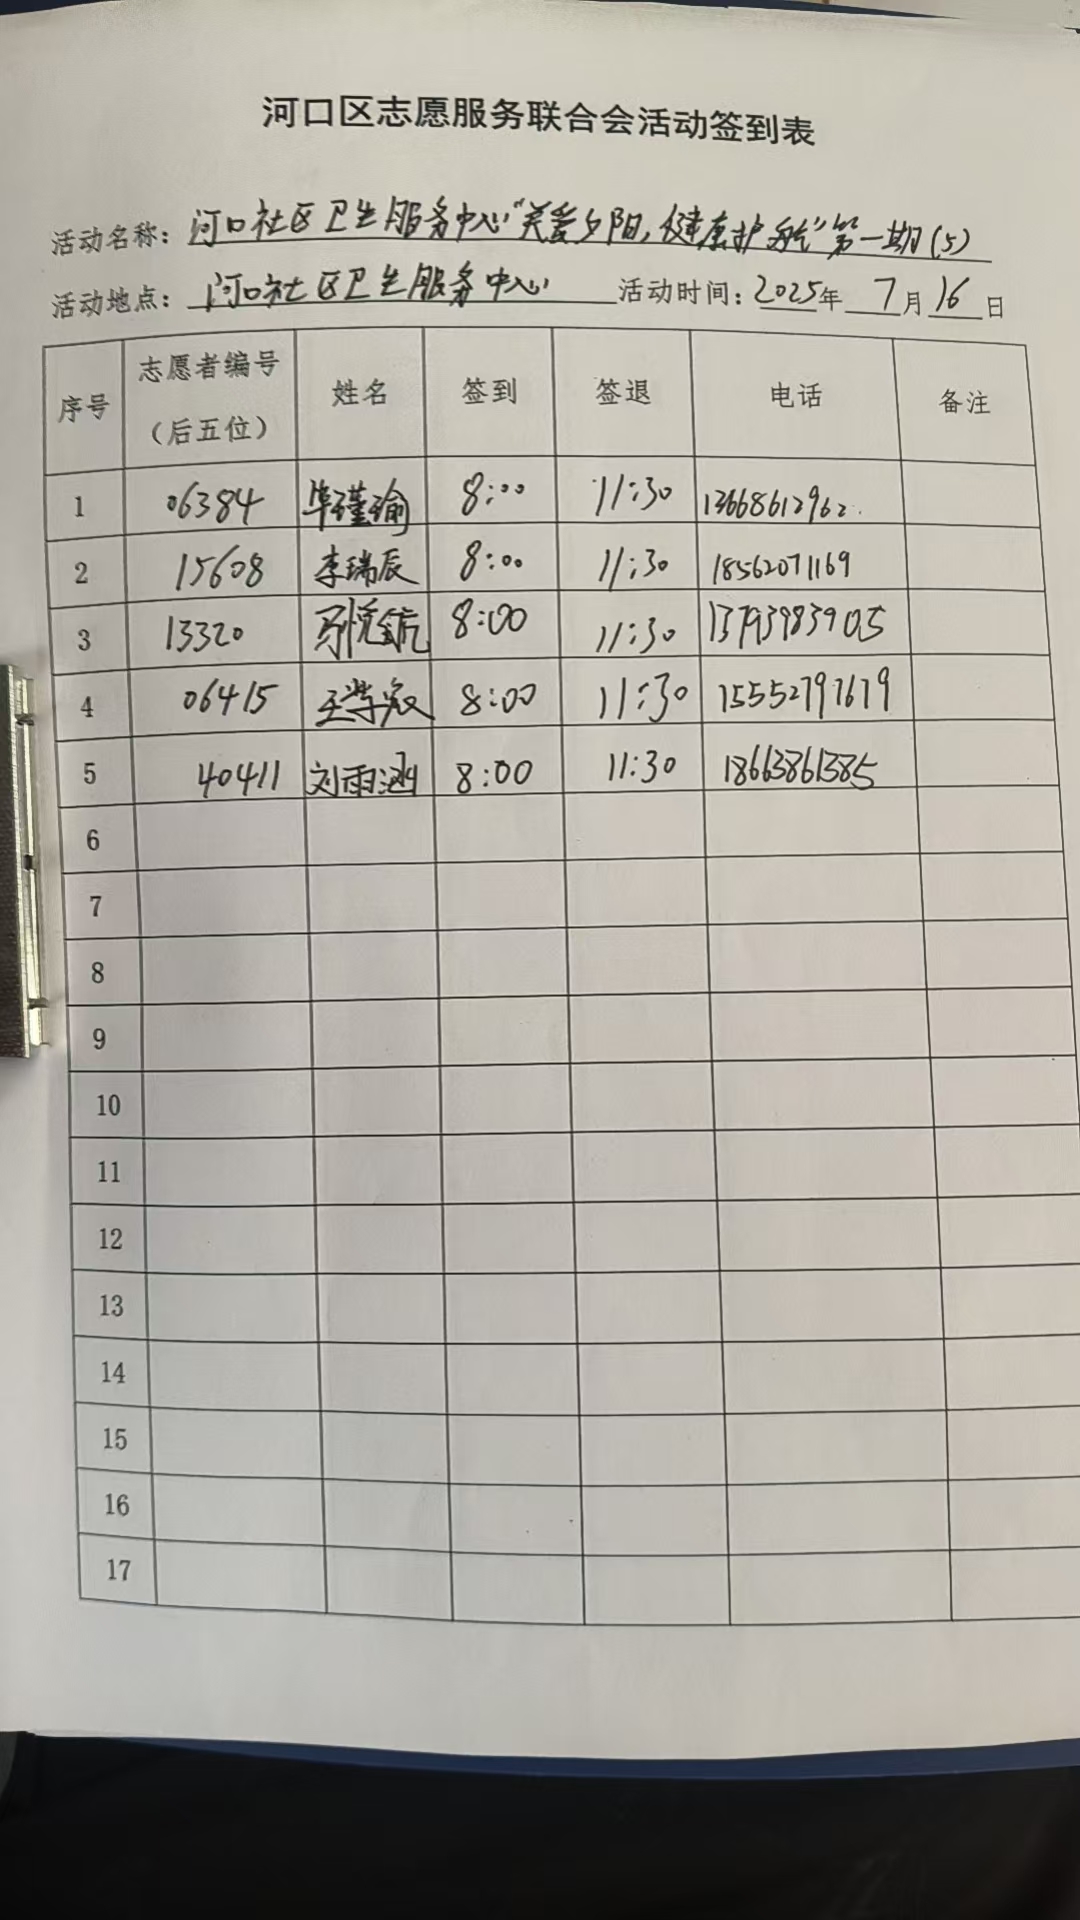 河口区志愿服务联合会活动签到表
活动名称：河口社区卫生服务中心“关爱夕阳，健康护航”第一期（5）
活动地点：河口社区卫生服务中心 活动时间：2025年7月16日
序号 志愿者编号（后五位） 姓名 签到 签退 电话 备注
1 06384 毕瑾瑜 8:00 11:30 13668612962
2 15608 李瑞辰 8:00 11:30 18562071169
3 13320 8:00 11:30 13793983905
4 06415 8:00 11:30 15552797679
5 40411 刘雨涵 8:00 11:30 18663861385
6
7
8
9
10
11
12
13
14
15
16
17